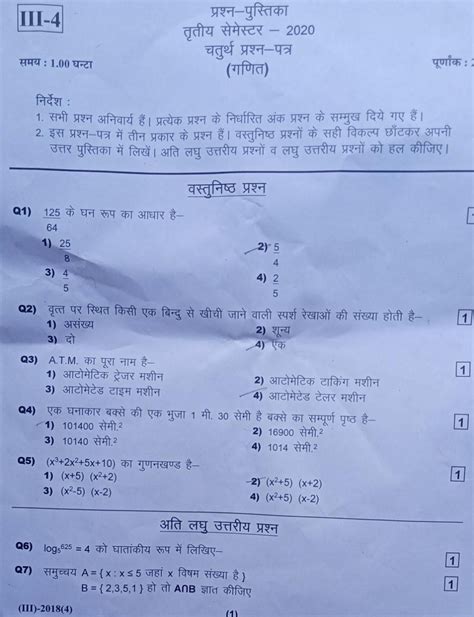 III-4
प्रश्न–पुस्तिका
तृतीय सेमेस्टर – 2020
चतुर्थ प्रश्न–पत्र
(गणित)
समय : 1.00 घन्टा
पूर्णांक :
निर्देश :
1. सभी प्रश्न अनिवार्य हैं। प्रत्येक प्रश्न के निर्धारित अंक प्रश्न के सम्मुख दिये गए हैं।
2. इस प्रश्न–पत्र में तीन प्रकार के प्रश्न हैं। वस्तुनिष्ठ प्रश्नों के सही विकल्प छाँटकर अपनी
उत्तर पुस्तिका में लिखें। अति लघु उत्तरीय प्रश्नों व लघु उत्तरीय प्रश्नों को हल कीजिए।
वस्तुनिष्ठ प्रश्न
Q1) 125 के घन रूप का आधार है–
64
1) 25
8
2) 5
4
3) 4
5
4) 2
5
Q2) वृत्त पर स्थित किसी एक बिन्दु से खीची जाने वाली स्पर्श रेखाओं की संख्या होती है– 1
1) असंख्य
2) शून्य
3) दो
4) एक
Q3) A.T.M. का पूरा नाम है– 1
1) आटोमेटिक ट्रेजर मशीन
2) आटोमेटिक टाकिंग मशीन
3) आटोमेटेड टाइम मशीन
4) आटोमेटेड टेलर मशीन
Q4) एक घनाकार बक्से की एक भुजा 1 मी. 30 सेमी है बक्से का सम्पूर्ण पृष्ठ है– 1
1) 101400 सेमी.²
2) 16900 सेमी.²
3) 10140 सेमी.²
4) 1014 सेमी.²
Q5) (x³+2x²+5x+10) का गुणनखण्ड है– 1
1) (x+5) (x²+2)
2) (x²+5) (x+2)
3) (x²-5) (x-2)
4) (x²+5) (x-2)
अति लघु उत्तरीय प्रश्न
Q6) log₅⁶²⁵ = 4 को घातांकीय रूप में लिखिए– 1
Q7) समुच्चय A = { x : x ≤ 5 जहां x विषम संख्या है } 1
B = { 2,3,5,1 } हो तो A∩B ज्ञात कीजिए
(III)-2018(4)
(1)